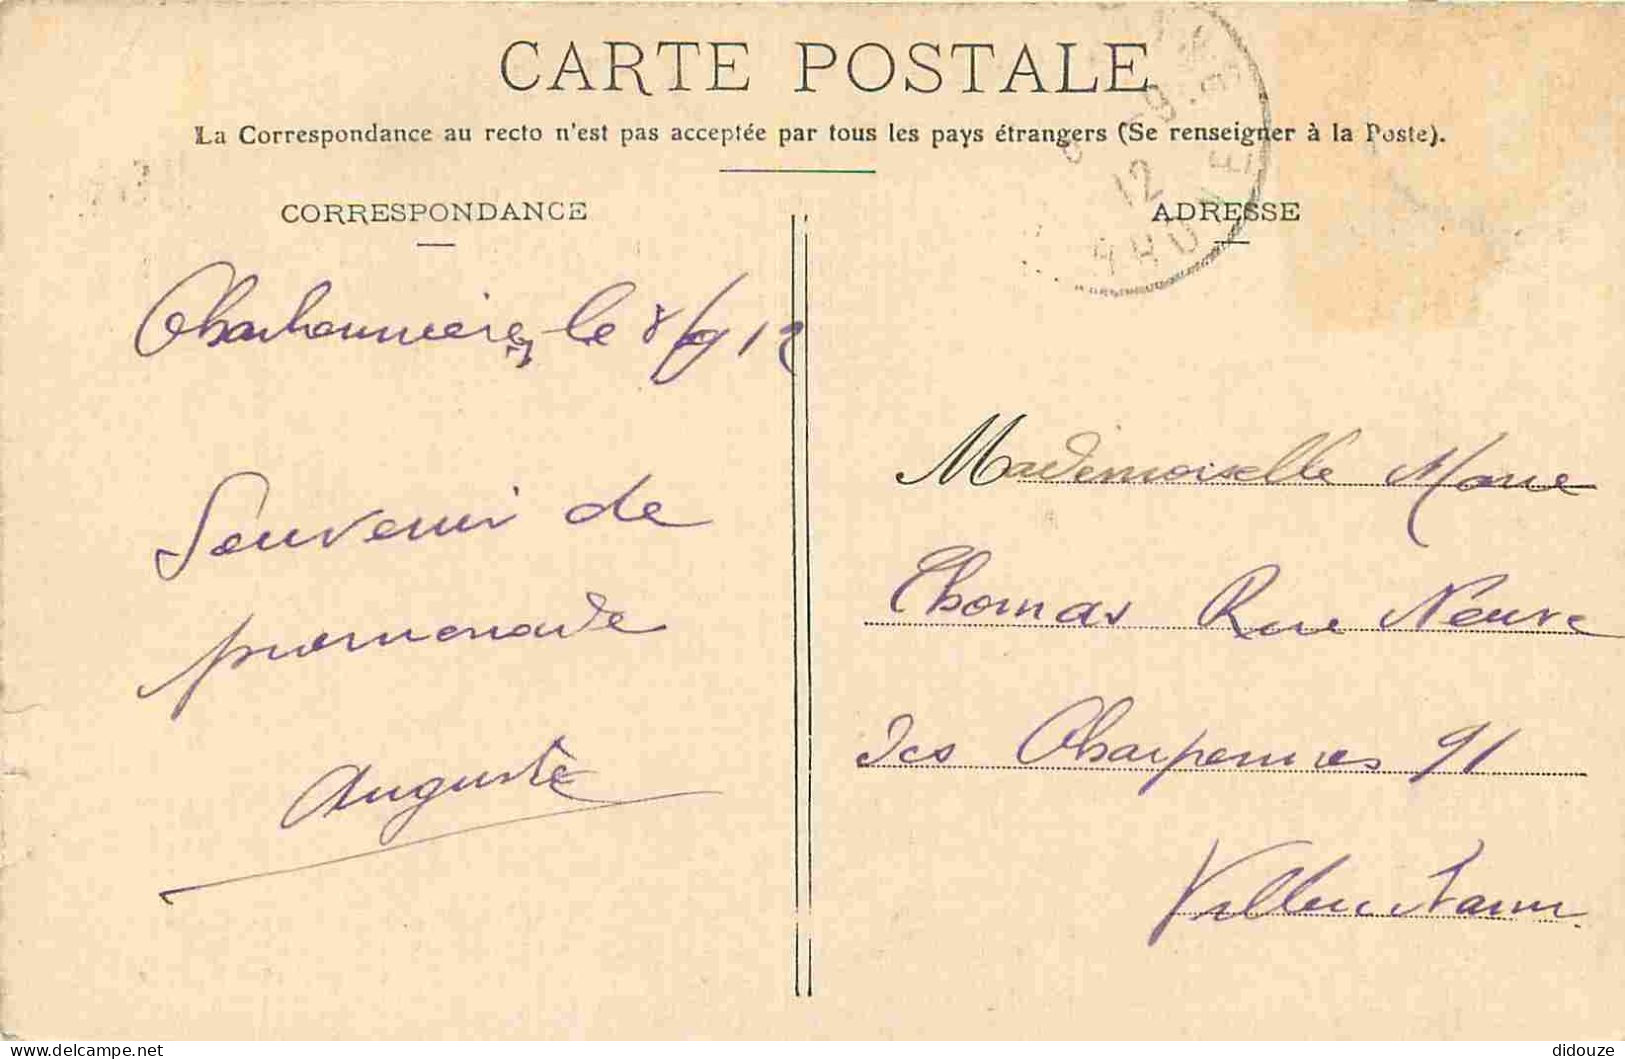 CARTE POSTALE
La Correspondance au recto n'est pas acceptée par tous les pays étrangers (Se renseigner à la Poste).
CORRESPONDANCE
Charbonnières, le 8/9 12
Souvenir de
promenade
Auguste
ADRESSE
12
RHONE
Mademoiselle Marie
Thomas Rue Neuve
des Charpennes 91
Villeurbanne
delcampe.net
didouze